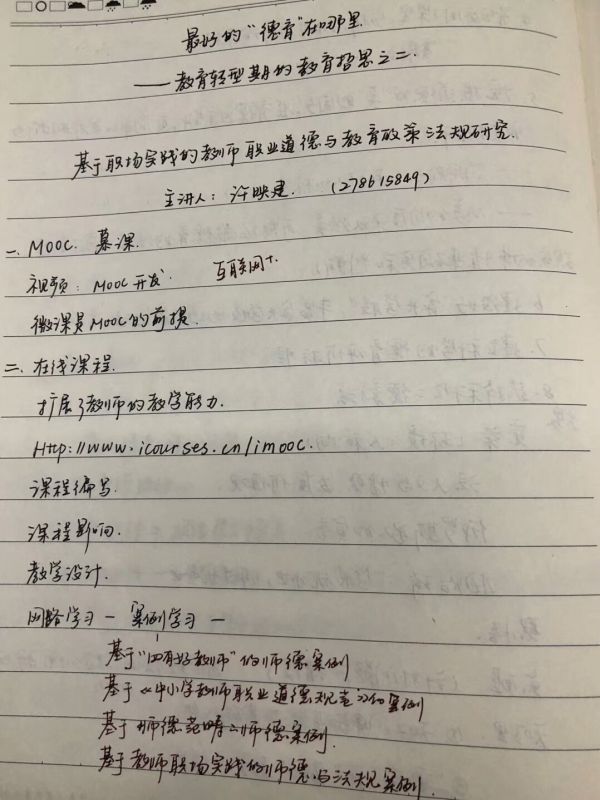 最好的“德育”在哪里
——教育转型期的教育哲思之二.
基于职场实践的教师职业道德与教育政策法规研究.
主讲人：许映建. (278615849)
一、MOOC. 慕课.
视频：MOOC开发. 互联网+.
微课是MOOC的前提.
二、在线课程.
扩展了教师的教学能力.
Http://www.icourses.cn/imooc.
课程编写.
课程影响.
教学设计.
网络学习 — 案例学习 —
基于“四有好教师”的师德案例
基于《中小学教师职业道德规范》的案例
基于师德范畴的师德案例.
基于教师职场实践的师德与法规案例.